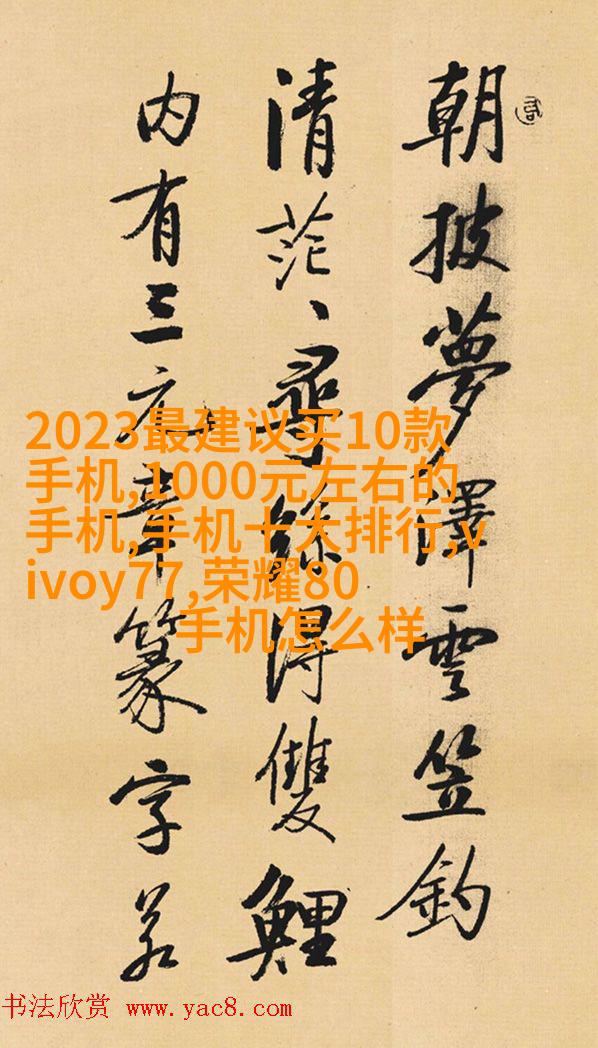 朝披夢澤雲笠釣
清茫、尋絲得雙鯉
内有三元章篆字若
2023最建议买10款
手机,1000元左右的
手机,手机十大排行,v
ivoy77,荣耀80
手机怎么样
书法欣赏 www.yac8.com